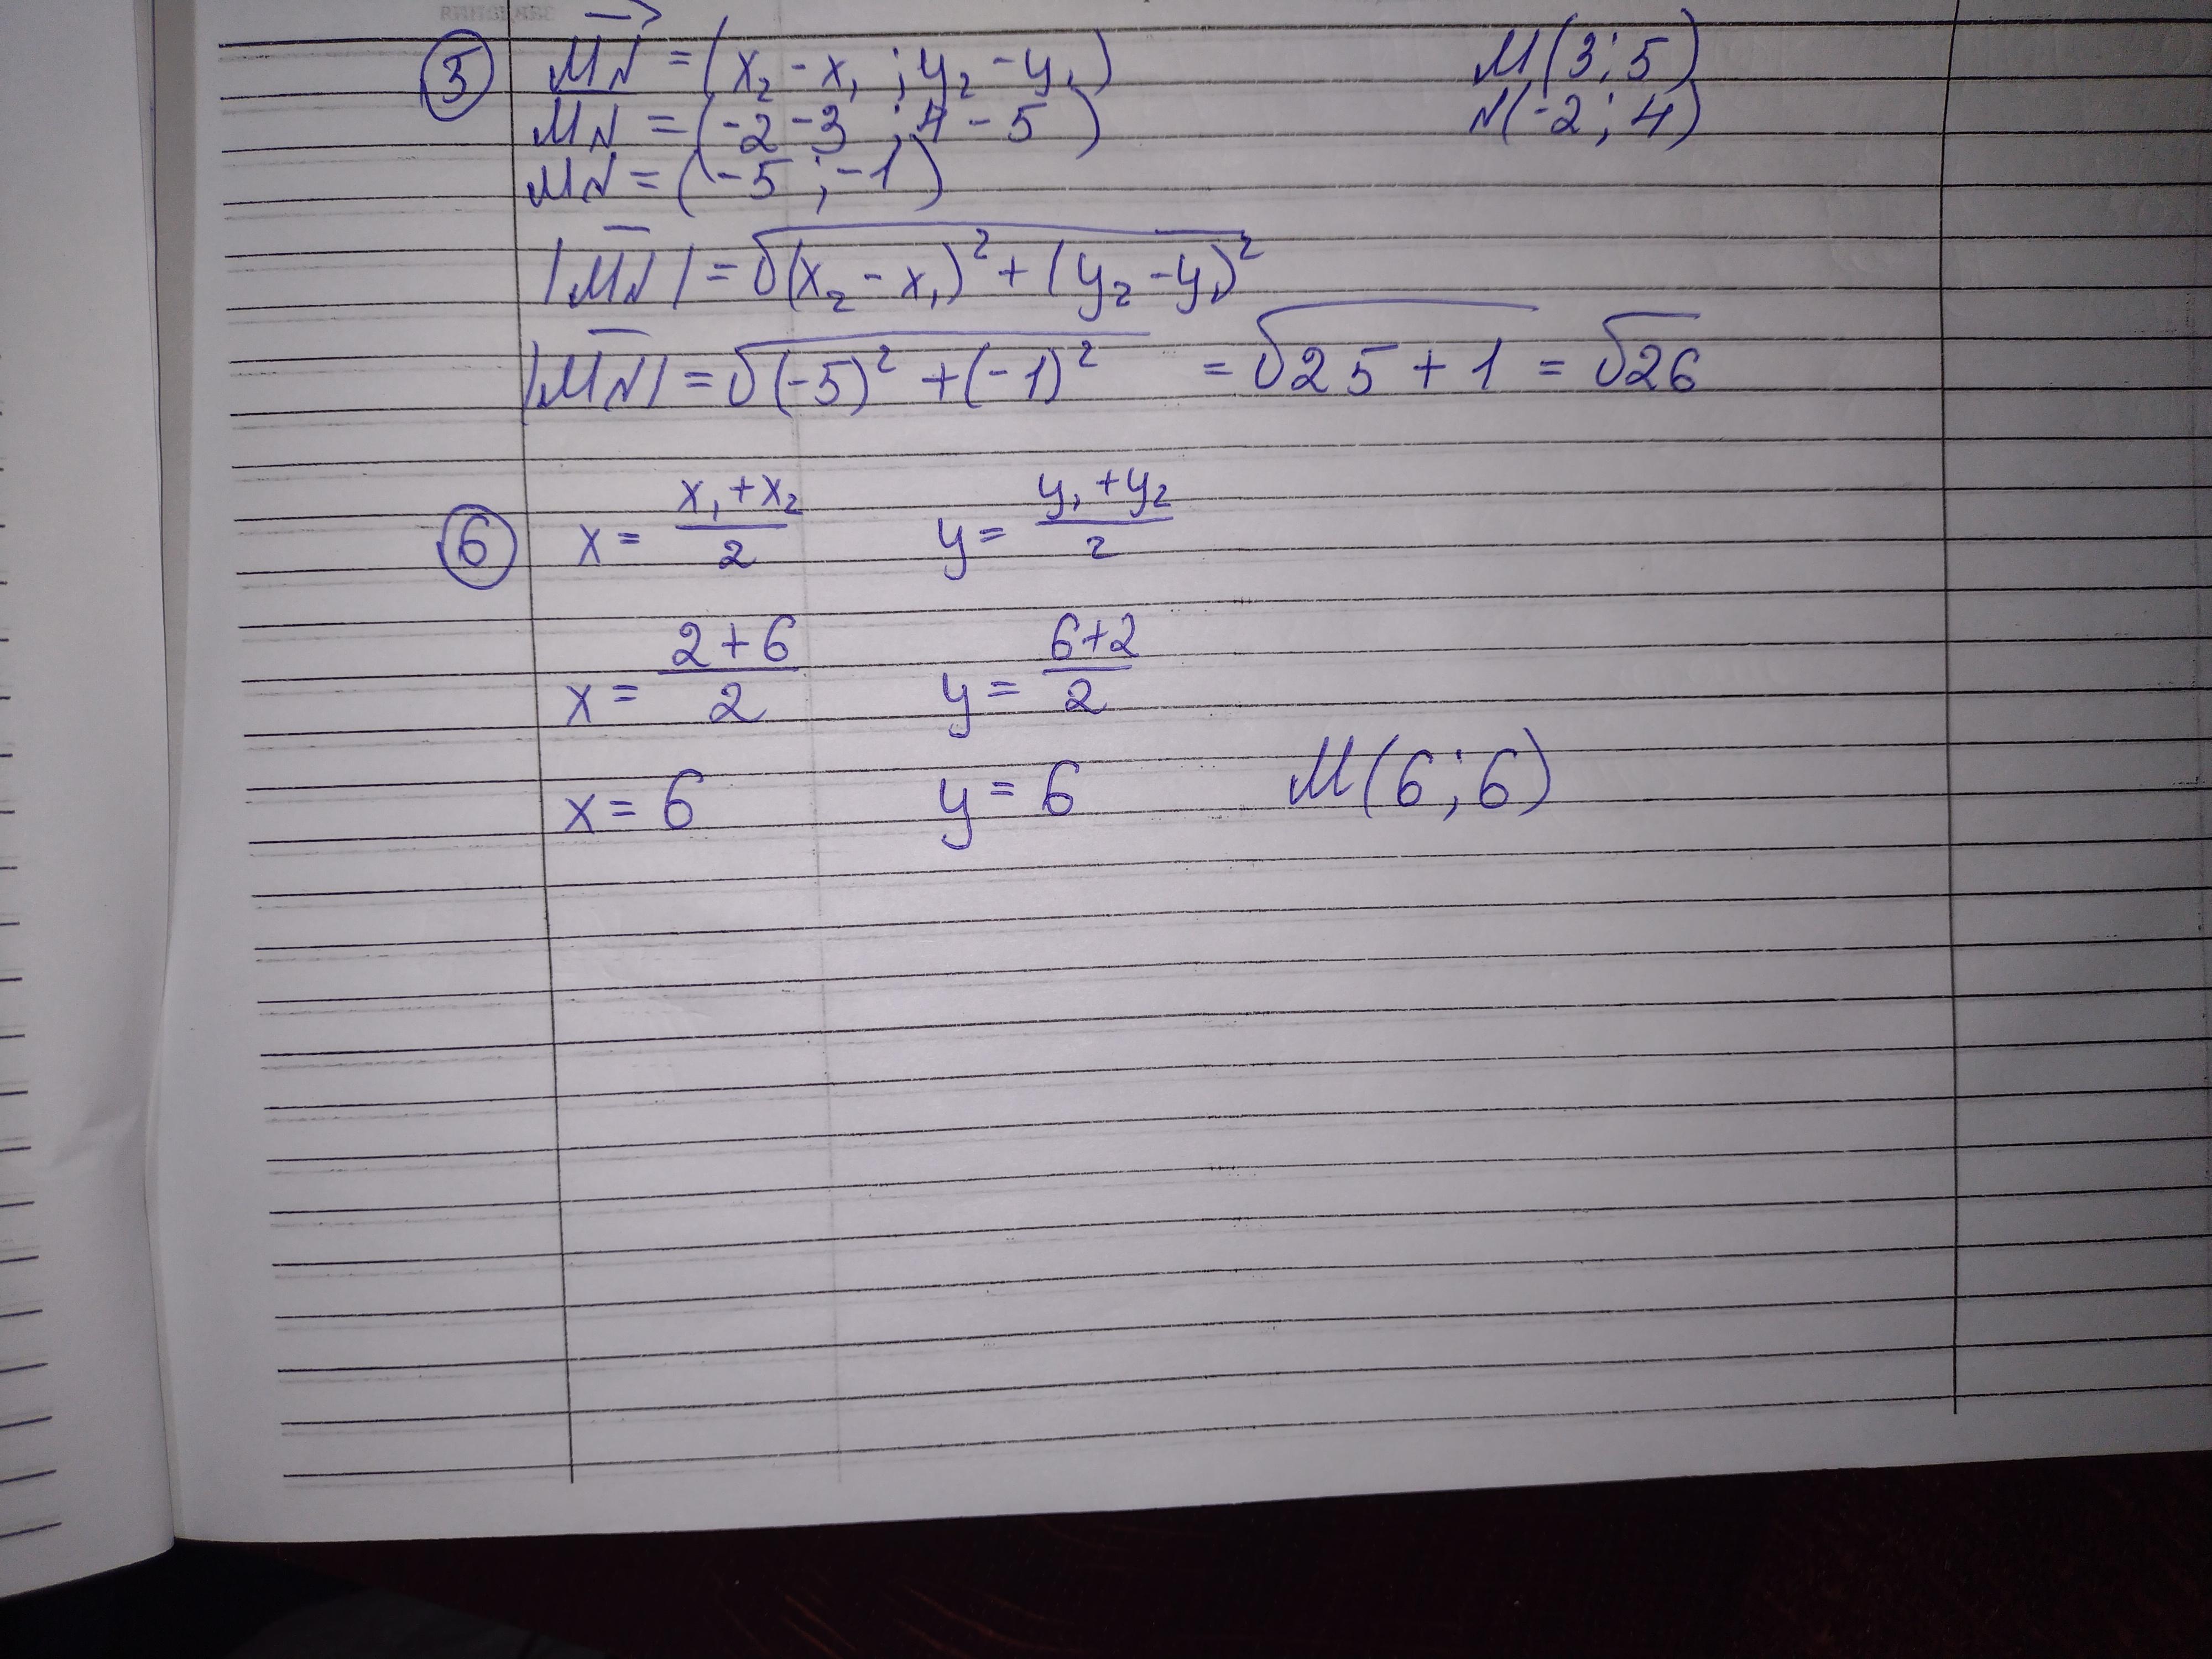 ⑤ MN⃗ = (x₂ - x₁ ; y₂ - y₁) M(3; 5)
MN = (-2 - 3 ; 4 - 5) N(-2; 4)
MN = (-5 ; -1)
|MN̅| = √(x₂ - x₁)² + (y₂ - y₁)²
|MN̅| = √(-5)² + (-1)² = √25 + 1 = √26
⑥ x = (x₁ + x₂)/2 y = (y₁ + y₂)/2
x = (2 + 6)/2 y = (6+2)/2
x = 6 y = 6 M(6; 6)